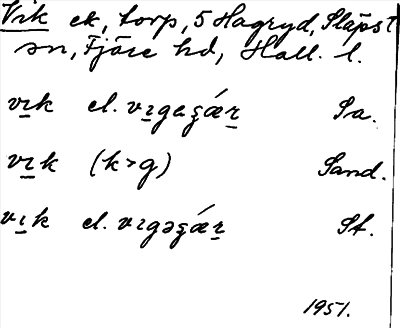 Vik ek, torp, 5 Hagryd, Släps t
sn, Fjäre hd, Hall. l.
vɪk el. vɪgaʂæ̀r Sa.
vɪk (k>g) Sand.
vɪk el. vɪgəʂæ̀r St.
1951.